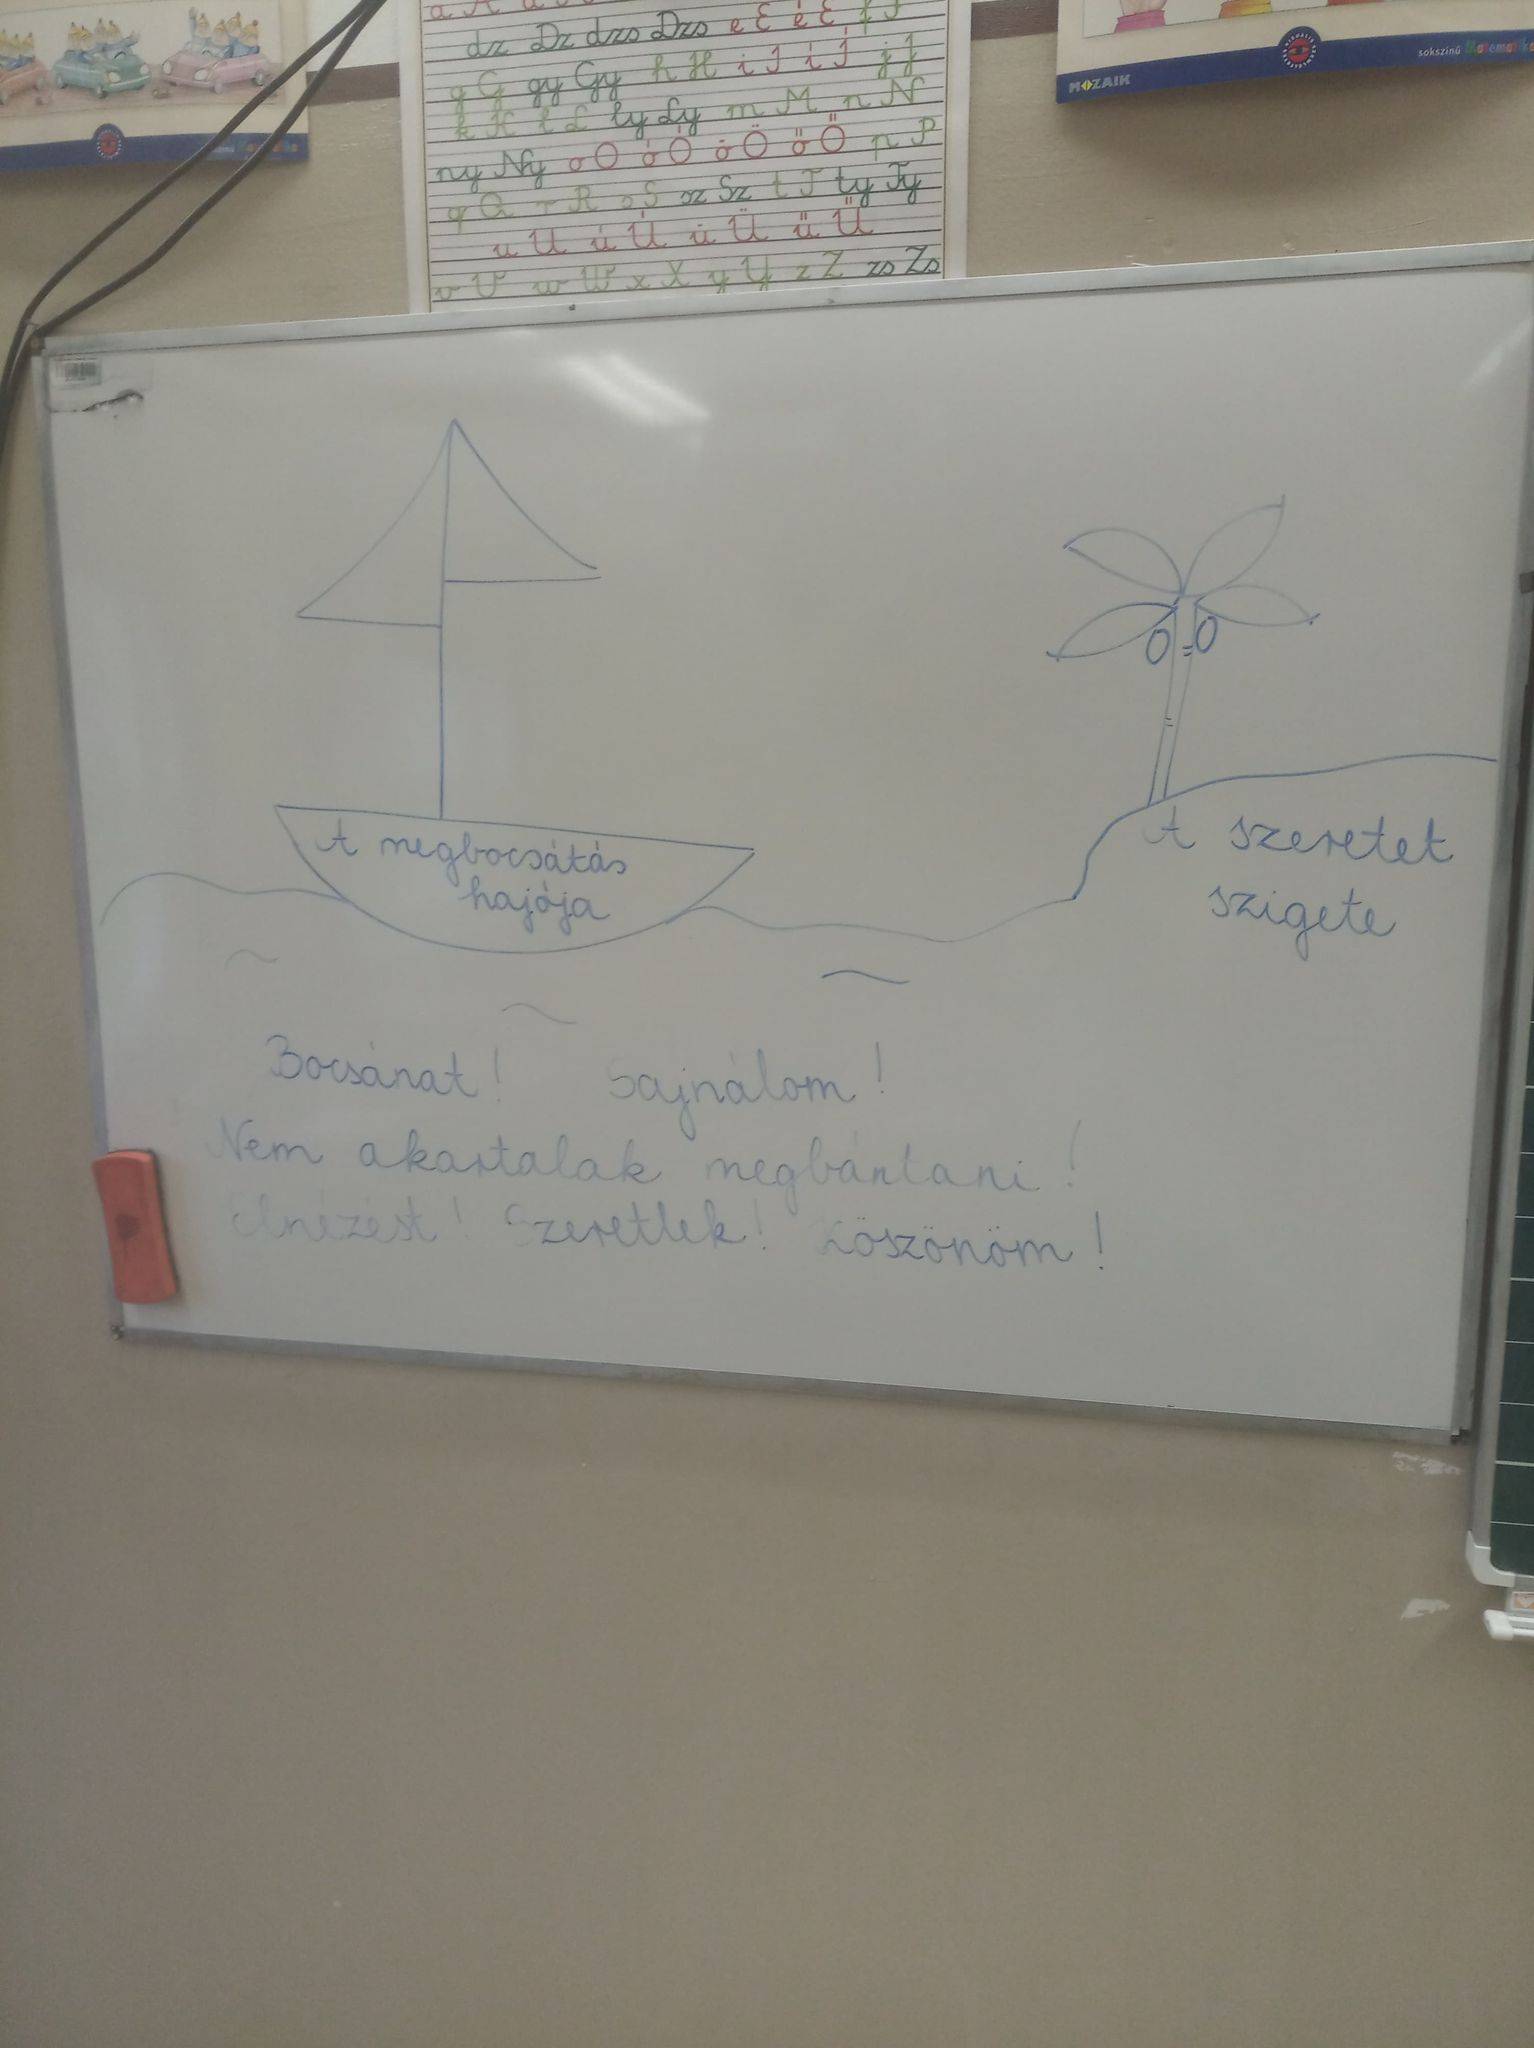 dz Dz dzs Dzs e E é É f F
g G gy Gy h H i I í Í j J
k K l L ly Ly m M n N
ny Ny o O ó Ó ö Ö ő Ő p P
q Q r R s S sz Sz t T ty Ty
u U ú Ú ü Ü ű Ű
v V w W x X y Y z Z zs Zs
MOZAIK
sokszínű Matematika
A megbocsátás
hajója
A szeretet
szigete
Bocsánat! Sajnálom!
Nem akartalak megbántani!
Elnézést! Szeretlek! Köszönöm!